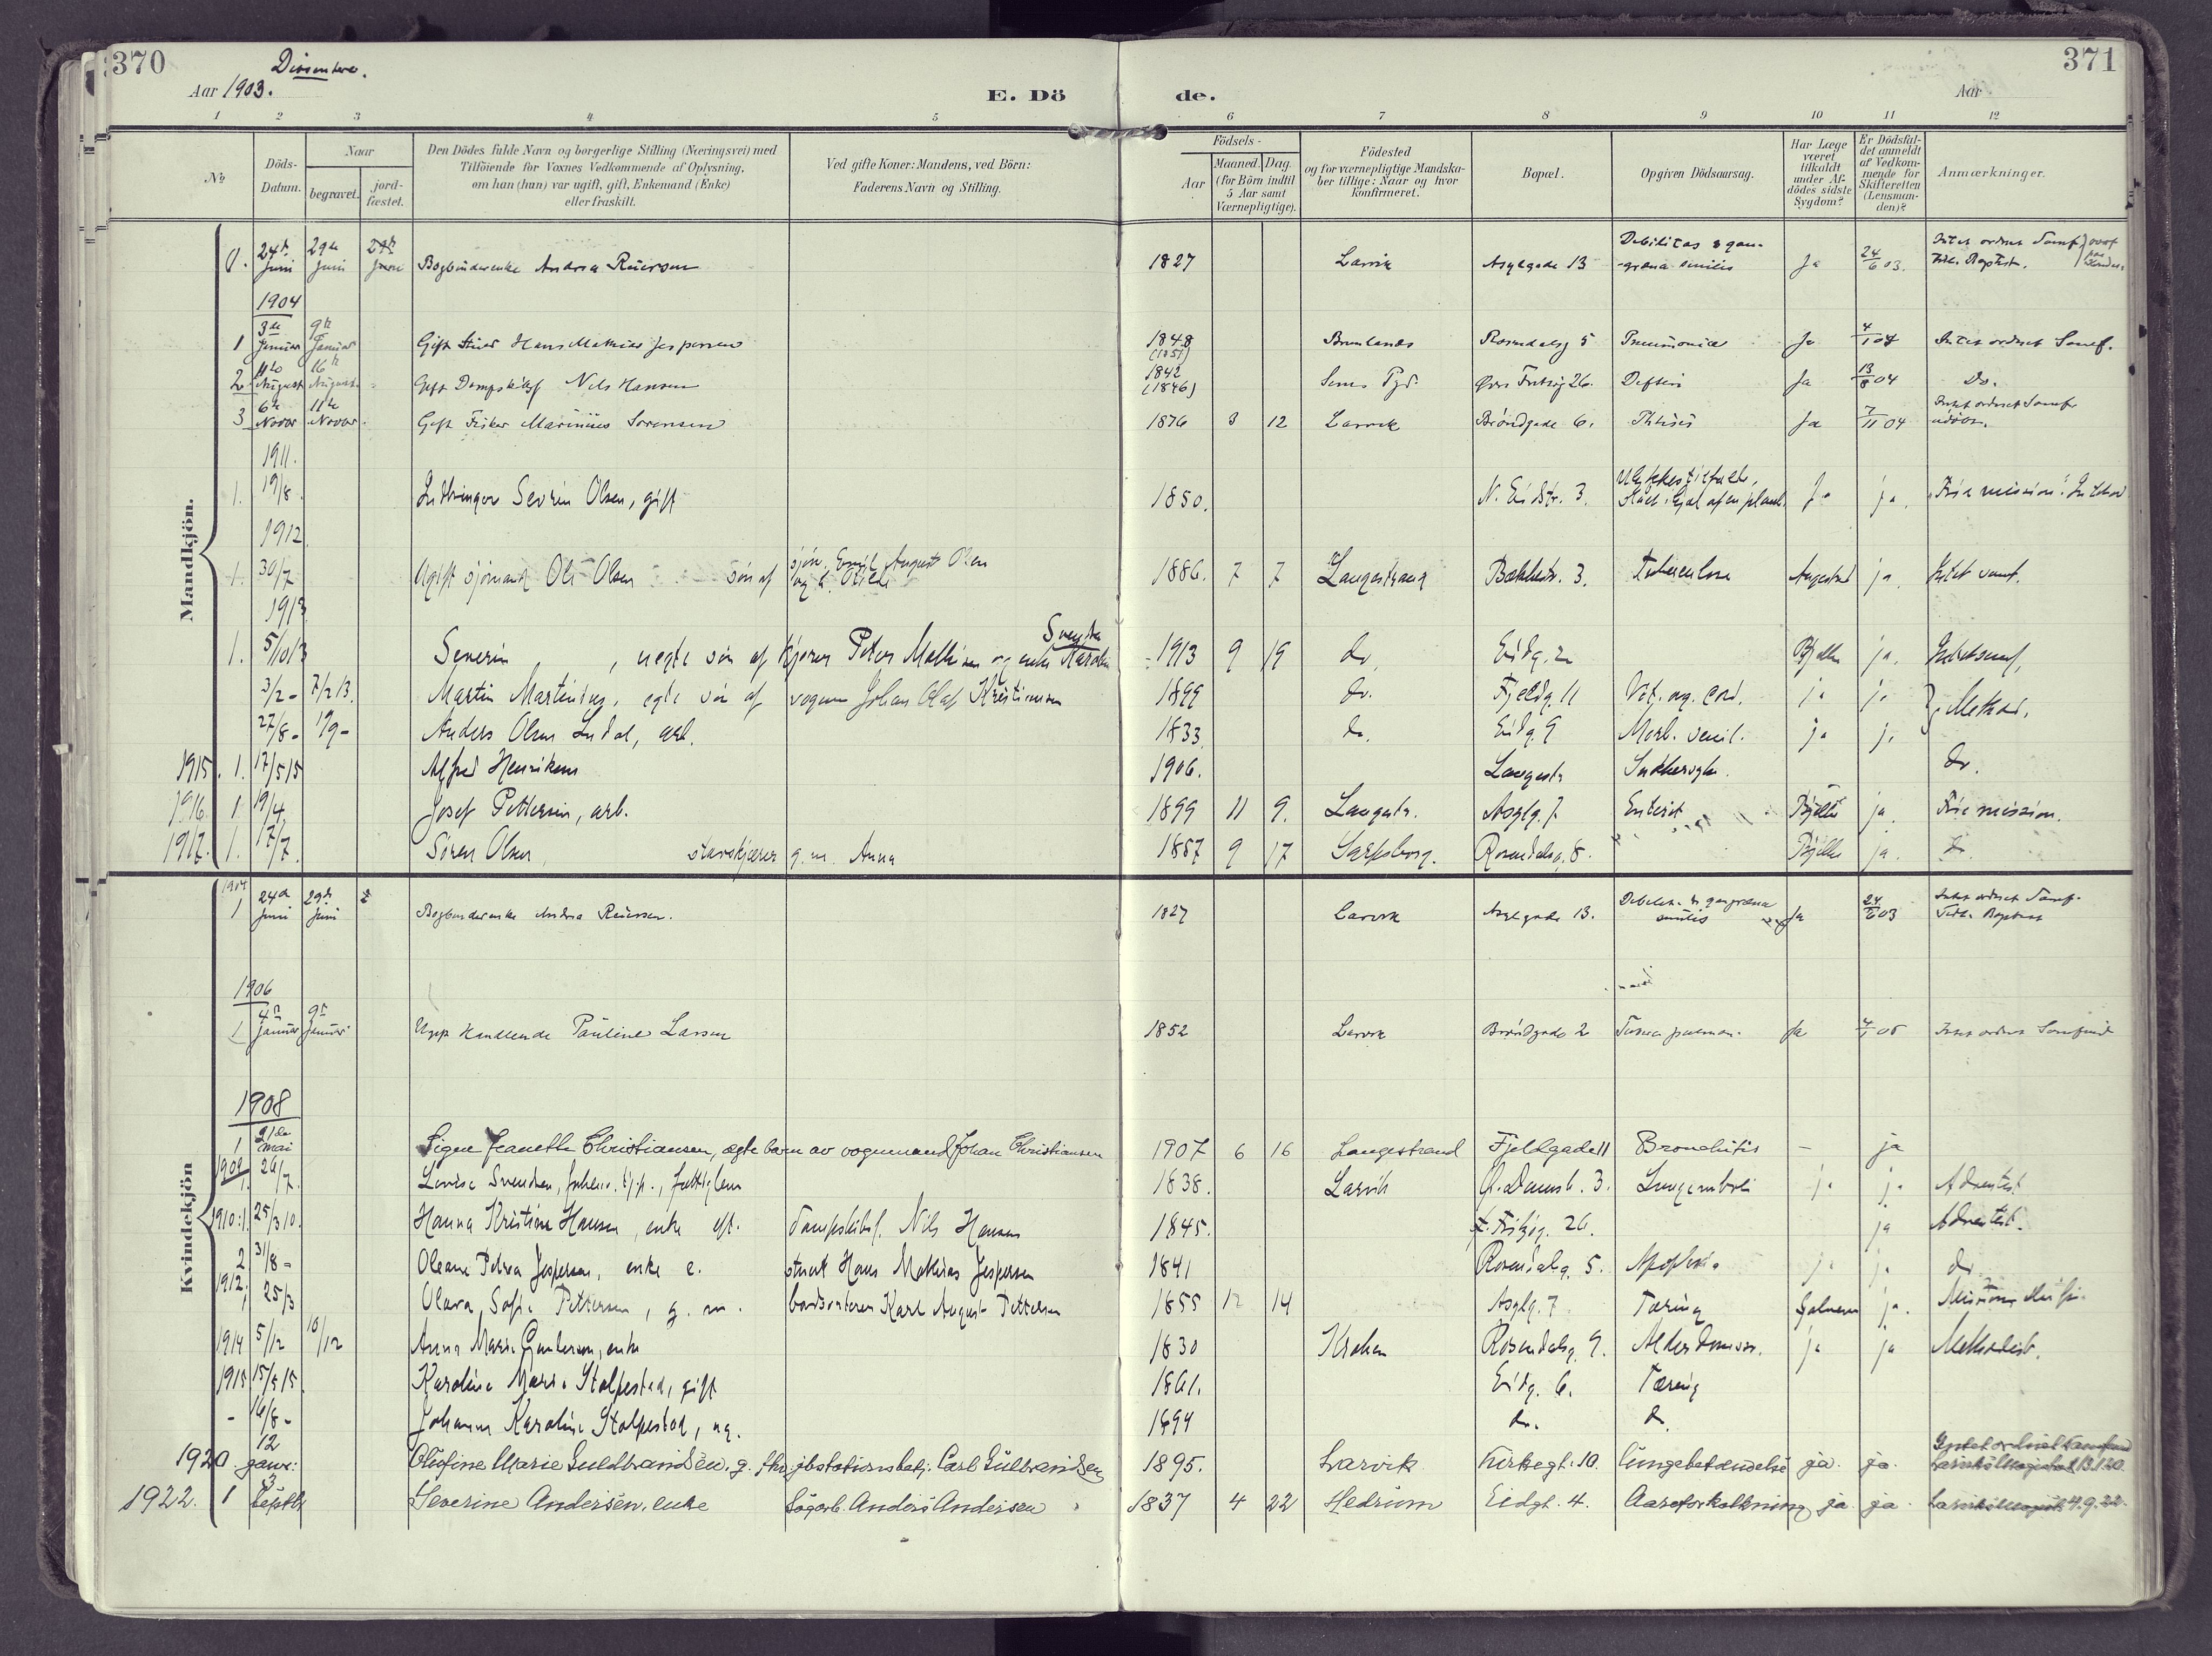 370
Dissentere.
Aar 1903.
E. Dö
de.
371
Aar
1 2 3 4 5 6 7 8 9 10 11 12
No
Döds-
Datum.
Naar
begravet.
jord-
fæstet.
Den Dödes fulde Navn og borgerlige Stilling (Næringsvei) med
Tilföiende for Voxnes Vedkommende af Oplysning,
om han (hun) var ugift, gift, Enkemand (Enke)
eller fraskilt.
Ved gifte Koner: Mandens, ved Börn:
Faderens Navn og Stilling.
Födsels-
Aar
Maaned. Dag.
(for Börn indtil
5 Aar samt
Værnepligtige).
Födested
og for værnepligtige Mandska-
ber tillige: Naar og hvor
konfirmeret.
Bopæl.
Opgiven Dödsaarsag.
Har Læge
været
tilkaldt
under Af-
dödes sidste
Sygdom?
Er Dödsfal-
det anmeldt
af Vedkom-
mende for
Skifteretten
(Lensman-
den)?
Anmærkninger.
Mandkjön.
24de Juni 29de Juni Bogbinderenke Andrea 1827 Larvik Asylgade 13 Debilitas & gan-
græna senilis Ja 24/6 03. Intet ordnet Samf.
1904
1 3de Januar 9de Januar Gift Hans Mathias Jespersen 1848 (1851) Rosendalsg 5 Pneumonia Ja 4/1 04 Intet ordnet Samf.
2 August 16de August Gift Nils Hansen 1842 (1846) Sems Pgd. 26. Ja 13/8 04 Do.
3 6te Novbr 11te Novbr. Gift Fisker Marinius Sørensen 1876 3 12 Larvik Brøndgade 6. Phtisis Ja 7/11 04 Intet ordnet Samf.
1911.
1. 19/8 Severin Olsen, gift 1850. N. Eidstr. 3. Ulykkestilfælde, Ja ja. "Frie mission".
1912
1. 30/7 Ugift sjømand Ole Olsen søn af sjøm. Emil August Olsen
og h. 1886. 7 7 Langestrand Bakkestr. 3. Tuberculose ja. Intet samf.
1913
1. 5/10 13 Severin, uegte søn af Peter og enke Karoline Svendsen 1913 9 19 do. Eidg. 2 Bjelke ja. Intet samf.
3/2 - 7/2 13. Martin Martinius, egte søn af vognm Johan Olaf Kristiansen 1899 do. Fjeldg. 11 Vit. org. cord. ja ja Method.
27/8 - 1/9 - Anders Olsen, arb. 1833 do. Eidg. 9 Morb. senil. ja ja
1915. 1. 17/5 15 Alfred Henriksen 1906. Langestr. Sukkersyge. do.
1916. 1. 19/4. Josef Pettersen, arb. 1899 11 9. Langestr. Asylg. 7 Enterit Bjelke ja. Frie mission.
1917. 1. 17/7. Søren Olsen, stavskjærer g. m. Anna 1887 9 17 Sarpsborg. Rosendalsg. 8. Bjelke ja. do.
Kvindekjön
1 24de Juni 29de Juni Bogbinderenke Andrea 1827 Larvik Asylgade 13. senilis Ja 24/6 03 Intet ordnet Samf.
1906
1 4de Januar 9de Januar Ugift Handlende Pauline Larsen 1852 Larvik Brøndgade 2 Ja Intet ordnet Samfund
1908
1 21de mai Signe Jeanette Christiansen, ægte barn av vognmand Johan Christiansen 1907 6 16 Langestrand Fjeldgade 11 Bronchitis - ja
1909 1. 26/7. Lovise Svendsen, fattiglem 1838. Larvik 3. ja ja Adventist
1910: 1. 25/3 10. Hanna Kristine Hansen, enke eft. Nils Hansen 1845. 26. ja Adventist.
2 31/8 - Oleane Petrea Jespersen, enke e. Hans Mathias Jespersen 1841 Rosendalsg. 5. Apoplexia ja ja do
1912: 1 25/3 Olava Sofie Pettersen, g. m. Karl August Pettersen 1855 12 14 Asylg. 7. Tæring ja.
1914 5/12 10/12 Anna Marie Gundersen, enke 1830 Rosendalsg. 9. Alderdomssv. ja ja Methodist.
1915 15/5 15. Karoline Marie Stolpestad, gift 1861. Eidg. 6. Tæring
- 16/8 - Johanne Karoline Stolpestad, ug. 1894 do. do.
1920. 12 januar: Olufine Marie Guldbrandsen. g. Carl Gulbrandsen 1895. Larvik Kirkegt. 10. lungebetændelse ja. ja. Intet ordnet samfund
13.1.20.
1922. 1 3 septbr Severine Andersen, enke Sagarb. Anders Andersen 1837 4 22 Hedrum Eidgt. 4. Aareforkalkning ja. ja. 4.9.22.